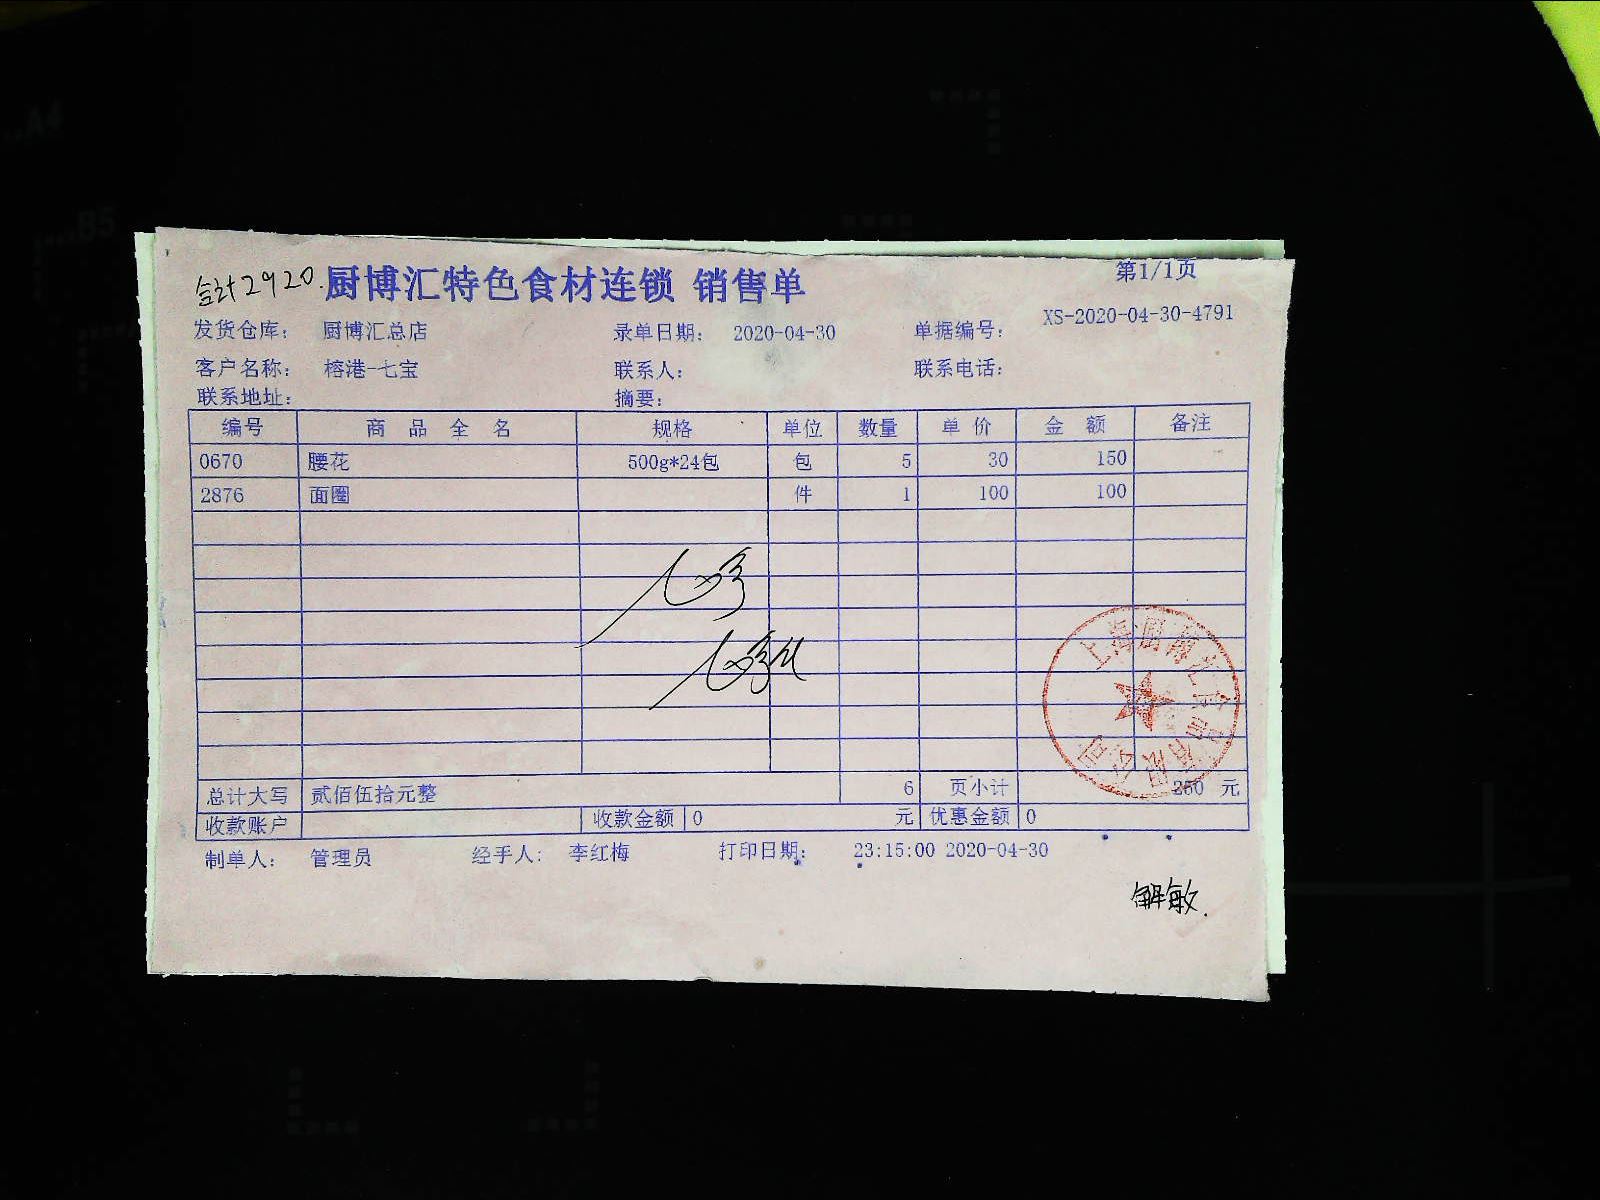 合计2920.
厨博汇特色食材连锁 销售单
第1/1页
发货仓库： 厨博汇总店 录单日期： 2020-04-30 单据编号： XS-2020-04-30-4791
客户名称： 榕港-七宝 联系人： 联系电话：
联系地址： 摘要：
编号 商品全名 规格 单位 数量 单价 金额 备注
0670 腰花 500g*24包 包 5 30 150
2876 面圈 件 1 100 100
总计大写 贰佰伍拾元整 6 页小计 250 元
收款账户 收款金额 0 元 优惠金额 0
制单人： 管理员 经手人： 李红梅 打印日期： 23:15:00 2020-04-30
解敏.